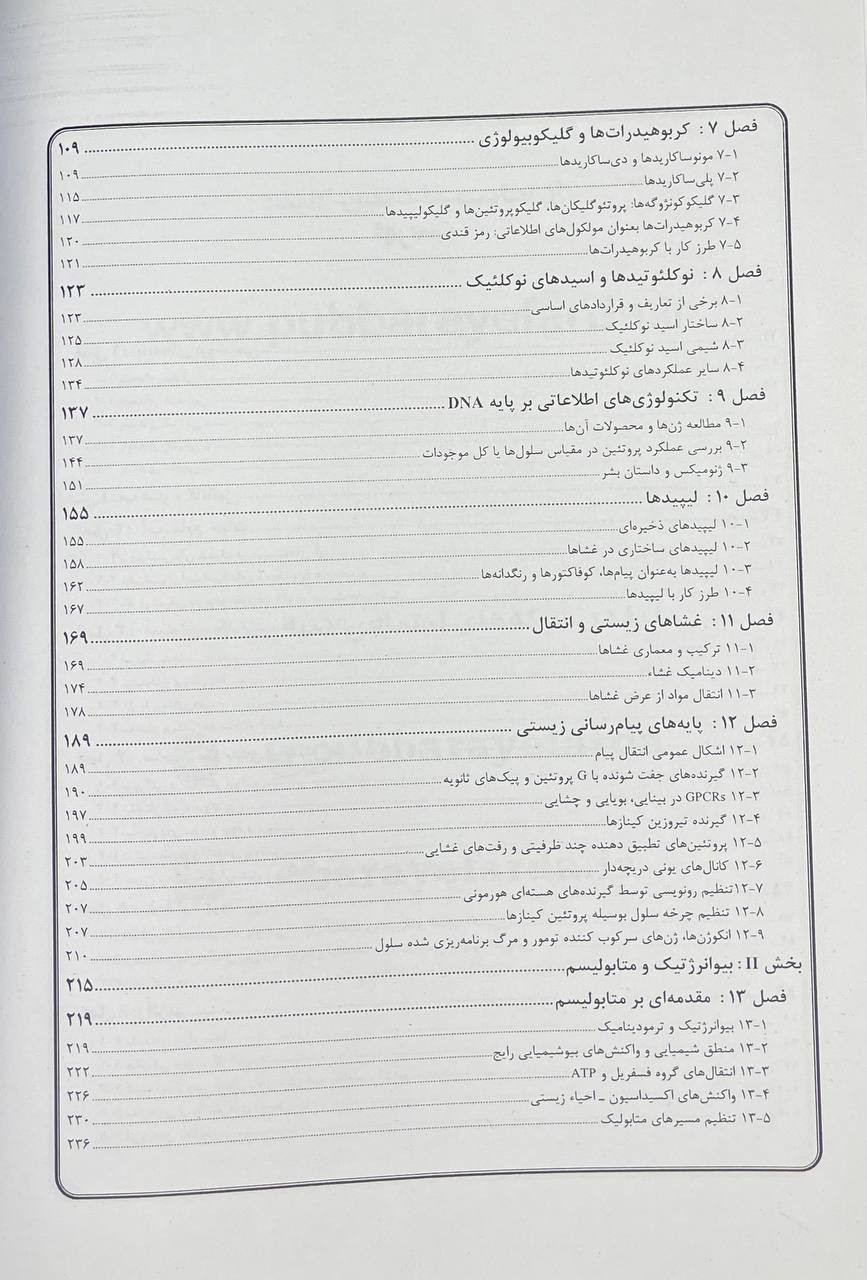 فصل ۷ : کربوهیدرات‌ها و گلیکوبیولوژی ۱۰۹
۷-۱ مونوساکاریدها و دی‌ساکاریدها ۱۰۹
۷-۲ پلی‌ساکاریدها ۱۱۵
۷-۳ گلیکوکونژوگه‌ها: پروتئوگلیکان‌ها، گلیکوپروتئین‌ها و گلیکولیپیدها ۱۱۷
۷-۴ کربوهیدرات‌ها بعنوان مولکول‌های اطلاعاتی: رمز قندی ۱۲۰
۷-۵ طرز کار با کربوهیدرات‌ها ۱۲۱
فصل ۸ : نوکلئوتیدها و اسیدهای نوکلئیک ۱۲۳
۸-۱ برخی از تعاریف و قراردادهای اساسی ۱۲۳
۸-۲ ساختار اسید نوکلئیک ۱۲۵
۸-۳ شیمی اسید نوکلئیک ۱۲۸
۸-۴ سایر عملکردهای نوکلئوتیدها ۱۳۴
فصل ۹ : تکنولوژی‌های اطلاعاتی بر پایه DNA ۱۳۷
۹-۱ مطالعه ژن‌ها و محصولات آن‌ها ۱۳۷
۹-۲ بررسی عملکرد پروتئین در مقیاس سلول‌ها یا کل موجودات ۱۴۴
۹-۳ ژنومیکس و داستان بشر ۱۵۱
فصل ۱۰ : لیپیدها ۱۵۵
۱۰-۱ لیپیدهای ذخیره‌ای ۱۵۵
۱۰-۲ لیپیدهای ساختاری در غشاها ۱۵۸
۱۰-۳ لیپیدها به‌عنوان پیام‌ها، کوفاکتورها و رنگدانه‌ها ۱۶۲
۱۰-۴ طرز کار با لیپیدها ۱۶۷
فصل ۱۱ : غشاهای زیستی و انتقال ۱۶۹
۱۱-۱ ترکیب و معماری غشاها ۱۶۹
۱۱-۲ دینامیک غشاء ۱۷۴
۱۱-۳ انتقال مواد از عرض غشاها ۱۷۸
فصل ۱۲ : پایه‌های پیام‌رسانی زیستی ۱۸۹
۱۲-۱ اشکال عمومی انتقال پیام ۱۸۹
۱۲-۲ گیرنده‌های جفت شونده با G پروتئین و پیک‌های ثانویه ۱۹۰
۱۲-۳ GPCRs در بینایی، بویایی و چشایی ۱۹۷
۱۲-۴ گیرنده تیروزین کینازها ۱۹۹
۱۲-۵ پروتئین‌های تطبیق دهنده چند ظرفیتی و رفت‌های غشایی ۲۰۳
۱۲-۶ کانال‌های یونی دریچه‌دار ۲۰۵
۱۲-۷تنظیم رونویسی توسط گیرنده‌های هسته‌ای هورمونی ۲۰۷
۱۲-۸ تنظیم چرخه سلول بوسیله پروتئین کینازها ۲۰۷
۱۲-۹ انکوژن‌ها، ژن‌های سرکوب کننده تومور و مرگ برنامه‌ریزی شده سلول ۲۱۰
بخش II : بیوانرژتیک و متابولیسم ۲۱۵
فصل ۱۳ : مقدمه‌ای بر متابولیسم ۲۱۹
۱۳-۱ بیوانرژتیک و ترمودینامیک ۲۱۹
۱۳-۲ منطق شیمیایی و واکنش‌های بیوشیمیایی رایج ۲۲۲
۱۳-۳ انتقال‌های گروه فسفریل و ATP ۲۲۶
۱۳-۴ واکنش‌های اکسیداسیون ـ احیاء زیستی ۲۳۰
۱۳-۵ تنظیم مسیرهای متابولیک ۲۳۶